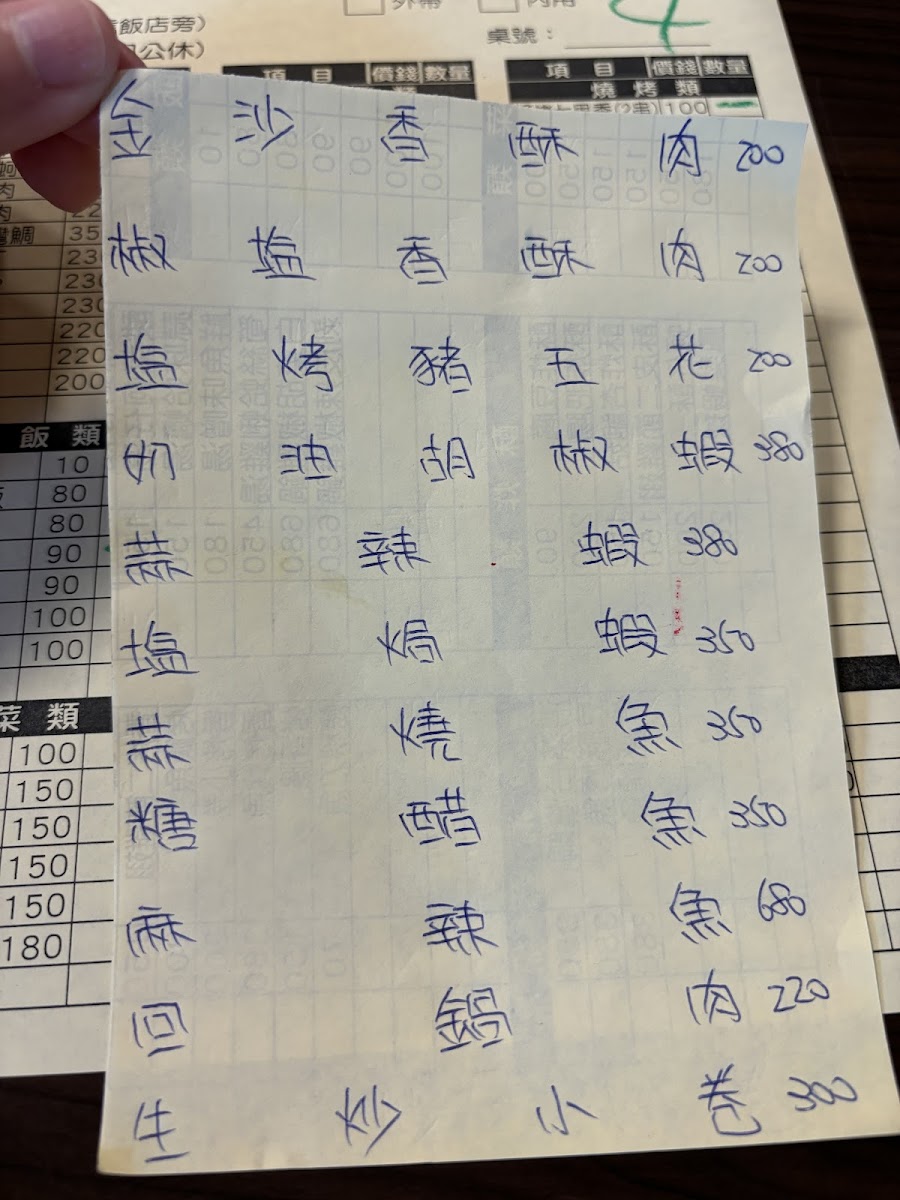 飯店旁)
公休)
外帶 內用
桌號：
4
項目 價錢 數量
項目 價錢 數量
燒烤類
(2串) 100
金沙香酥肉 200
椒塩香酥肉 200
塩烤豬五花 200
奶油胡椒蝦 380
蒜辣蝦 380
塩焗蝦 350
蒜燒魚 350
糖醋魚 350
麻辣魚 680
回鍋肉 220
生炒小卷 300
230
230
220
220
200
飯類
10
80
80
90
90
100
100
菜類
100
150
150
150
150
180